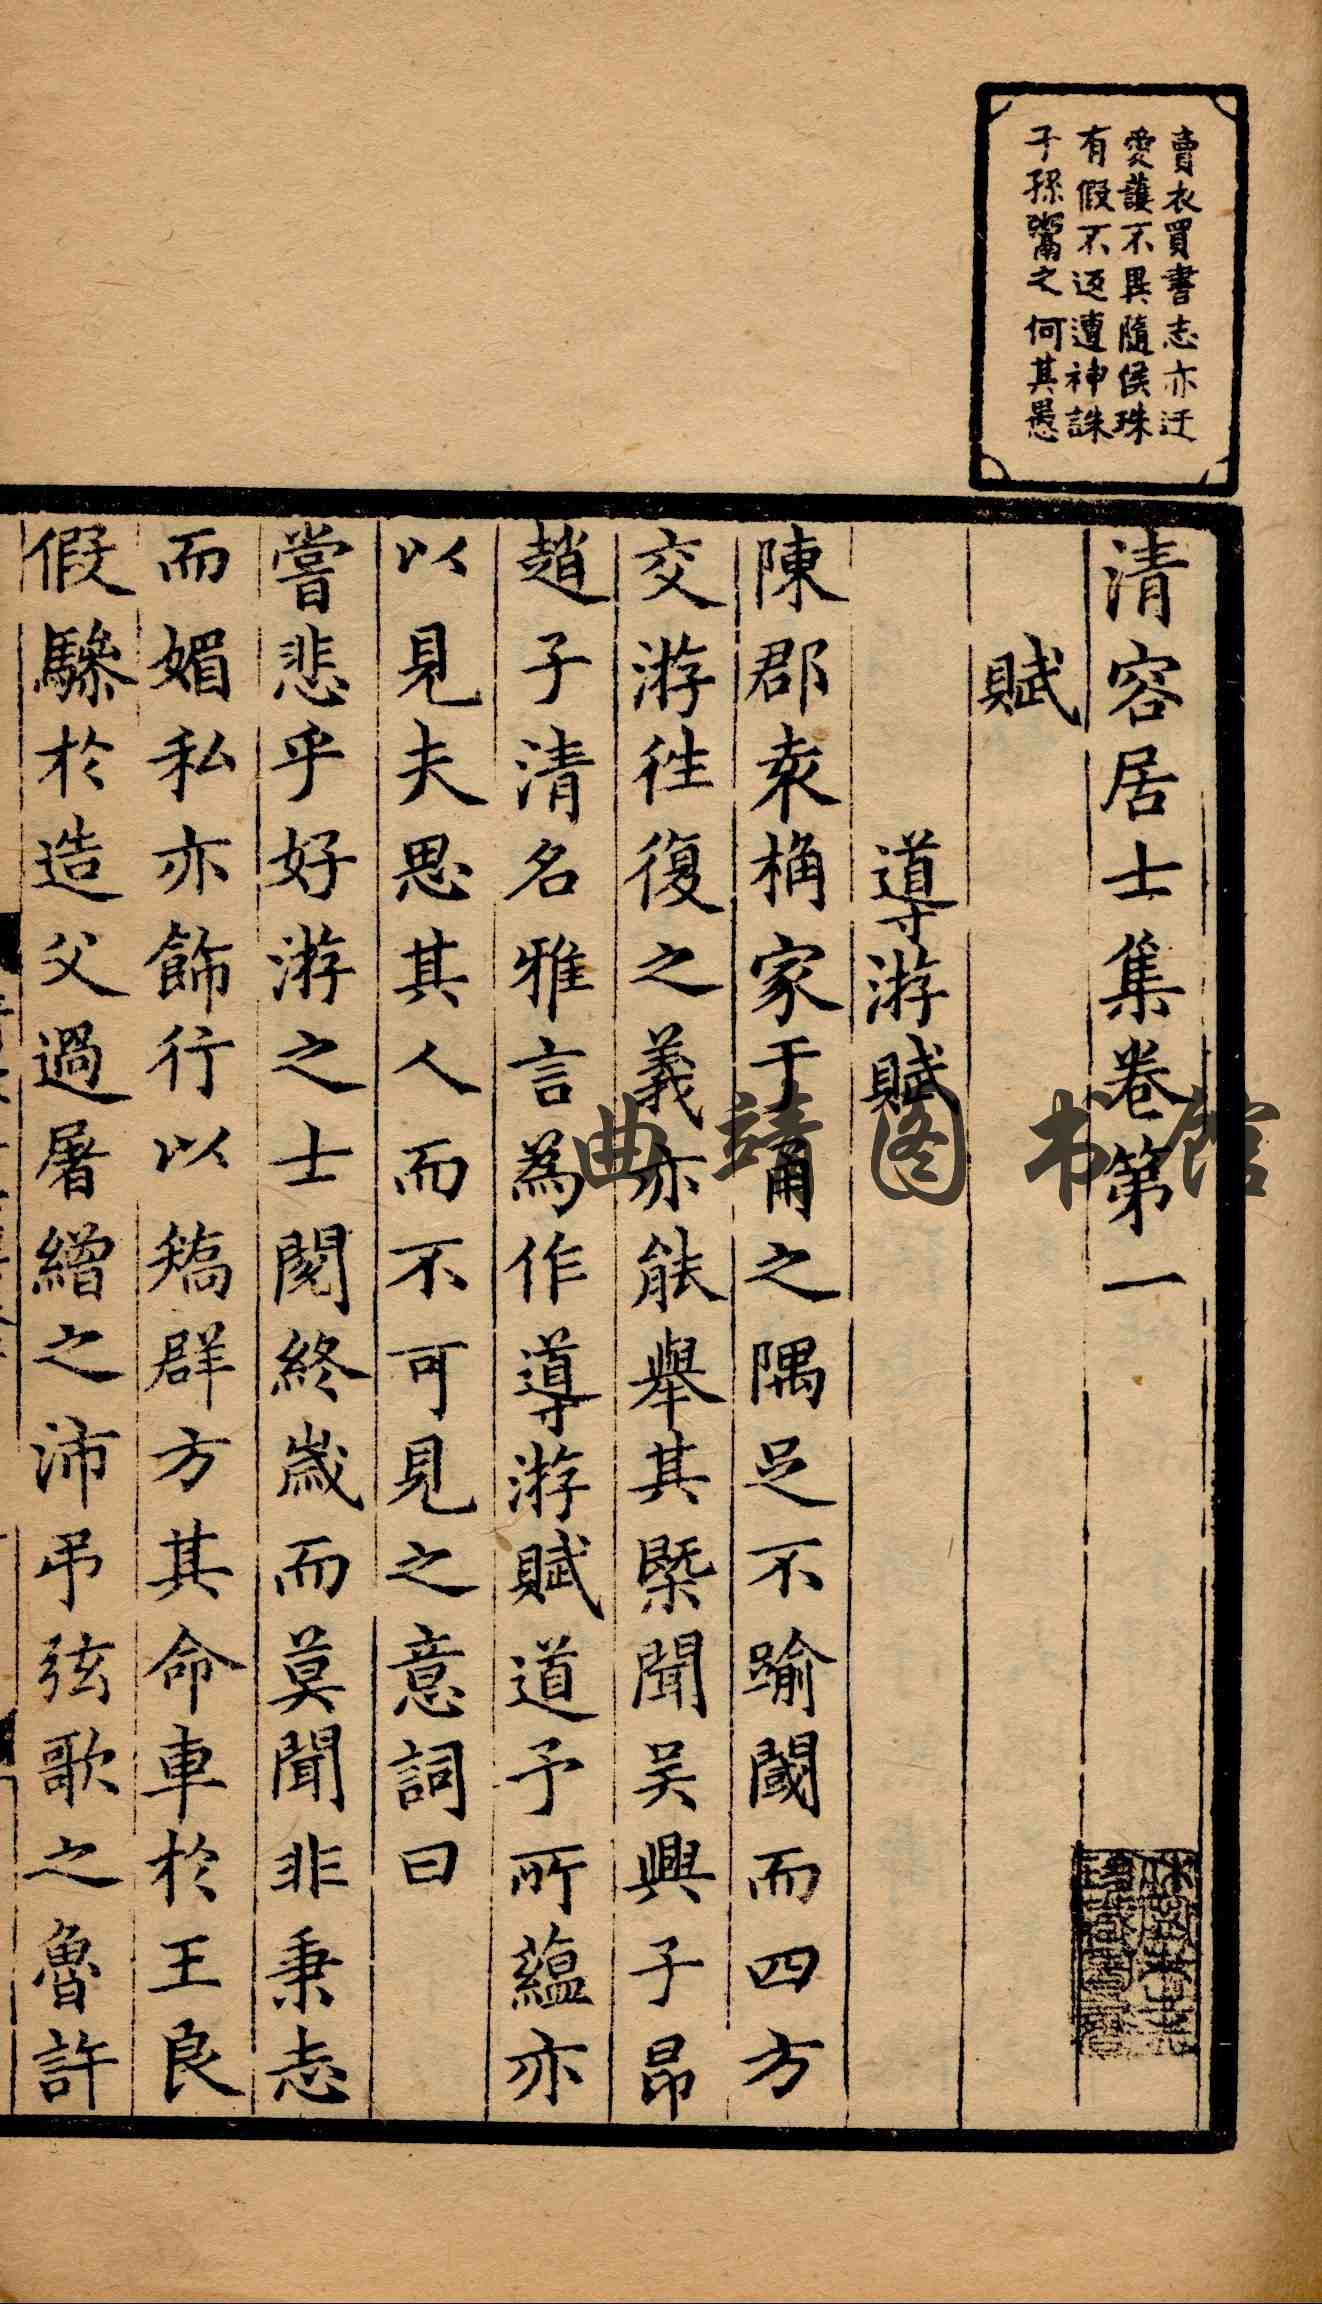 賣衣買書志亦迂
愛護不異隨侯珠
有假不返遭神誅
子孫鬻之何其愚
清容居士集卷第一
賦
導游賦
陳郡袁桷家于甬之隅足不踰閾而四方
交游徃復之義亦能舉其槩聞吴興子昂
趙子清名雅言爲作導游賦道予所蘊亦
以見夫思其人而不可見之意詞曰
嘗悲乎好游之士閱終歲而莫聞非秉志
而媚私亦飾行以矯群方其命車於王良
假驂於造父過屠繒之沛弔弦歌之魯許
曲靖图书馆